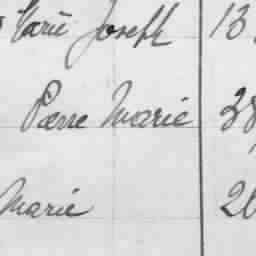 Marie Joseph 13
Pierre Marie 38
Marie 20